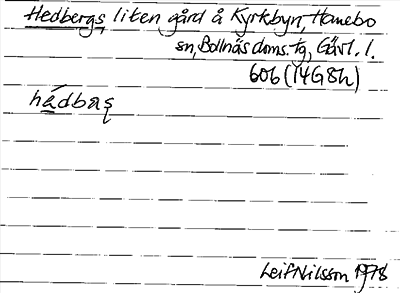 Hedbergs, liten gård å Kyrkbyn, Hanebo
sn, Bollnäs doms. tg, Gävl. l.
606 (14G8h)
hédbæʂ
Leif Nilsson 1978